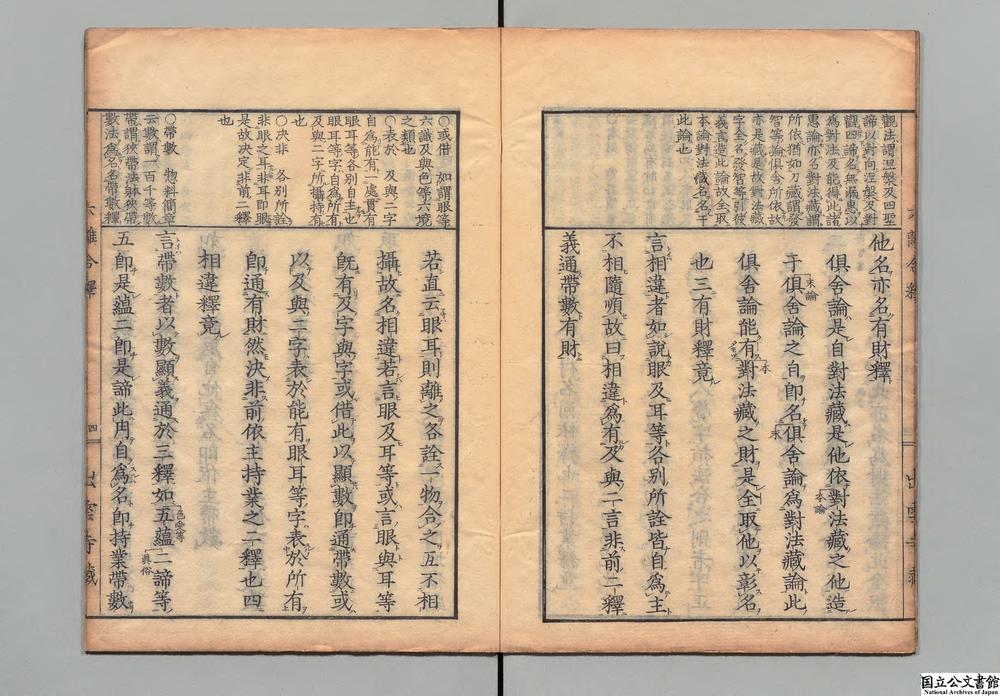 觀法謂涅槃及四聖
諦以對向涅槃及對
觀四諦名無漏惠以
為對法及能得此諸
惠論亦名對法藏謂
所依猶如刀藏謂發
智等論俱舍所依故
亦是藏是故對法藏
字全名發智等引彼
義言造此論故全取
本論對法藏名名于
此論也
他名亦名有財釋
俱舍論是自對法藏是他依對法藏之他造
本論
于俱舍論之自即名俱舍論為對法藏論此
末論
末
俱舍論能有對法藏之財是全取他以彰名
本
也三有財釋竟
言相違者如說眼及耳等各別所詮皆自為主
不相隨順故曰相違為有及與二言非前二釋
義通帶數有財
六離合釋
四
出雲寺藏
○或借 如謂眼等
六識及與色等六境
之類也
○表於 及與二字
自為能有一處貫有
眼耳等各別自主也
眼耳等字自為所有
及與二字所攝持有
也
○决非 各別所詮
非眼之耳非耳即眼
是故决定非前二釋
也
○帶數 物料簡章
云數謂一百千等數
帶謂狹帶法躰狹帶
數法為名名帶數釋
若直云眼耳則離之各詮一物合之互不相
攝故名相違若言眼及耳等或言眼與耳等
既有及字與字或借此以顯數即通帶數或
以及與二字表於能有眼耳等字表於所有
即通有財然决非前依主持業之二釋也四
相違釋竟
言帶數者以數顯義通於三釋如五蘊二諦等
色受等
真俗
五即是蘊二即是諦此用自為名即持業帶數
国立公文書館
National Archives of Japan